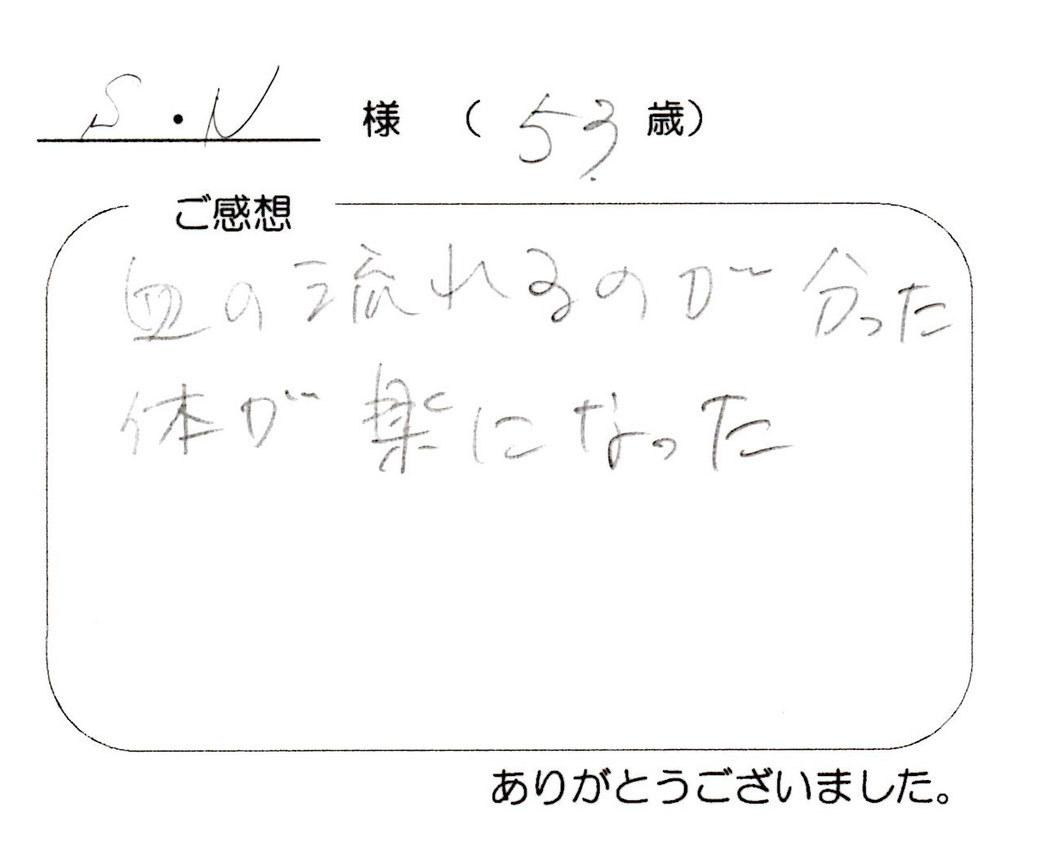 S・N 様 （ 53 歳）
ご感想
血の流れるのが分った
体が楽になった
ありがとうございました。